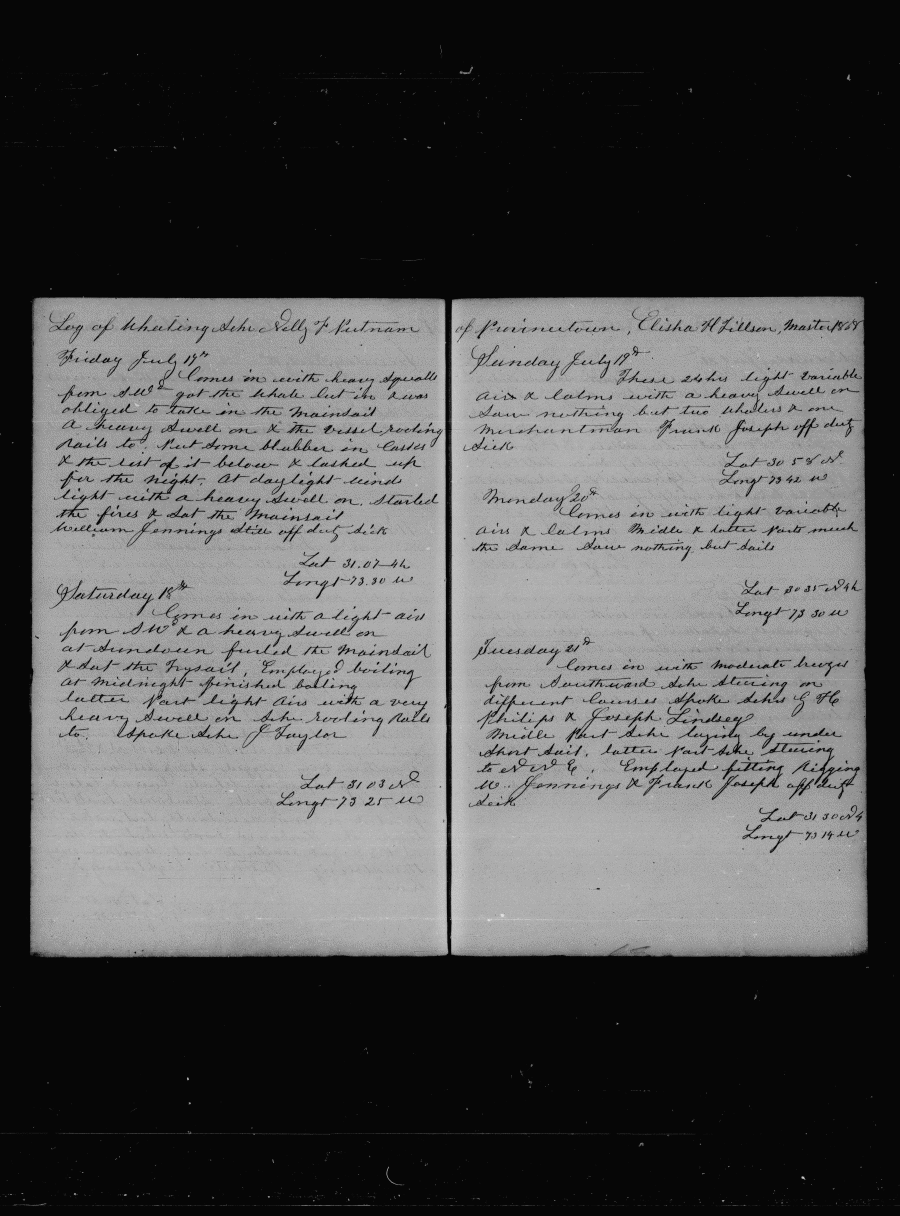 Log of Whaling Schr Nelly F Putnam
Friday July 17th
Comes in with heavy squalls
from SWd got the whale cut in & was
obliged to take in the Mainsail
A heavy swell on & the vessel rooling
rails to. Put some blubber in Casks
& the rest of it below & lashed up
for the night. At daylight wind
light with a heavy swell on. started
the fires & sat the Mainsail
William Jennings still off duty sick
Lat 31.07
Longt 73.30 W
Saturday 18th
Comes in with a light air
from SWd & a heavy swell on
at sundown furled the Mainsail
& sat the Trysail, Employed boiling
at Midnight finished boiling
latter Part light airs with a very
heavy swell on Schr rooling rails
to. Spoke Schr J Taylor
Lat 31 03 N
Longt 73 25 W
of Provincetown, Elisha H Tillson, Master 1868
Sunday July 19th
These 24 hrs light variable
airs & Calms with a heavy swell on
Saw nothing but two whalers & one
Merchantman Frank Joseph off duty
Sick
Lat 30 58 N
Longt 73 42 W
Monday 20th
Comes in with light variable
airs & Calms Midle & latter Parts much
the same Saw nothing but sails
Lat 30 35 N
Longt 73 30 W
Tuesday 21st
Comes in with moderate breezes
from Southward Schr steering on
different Courses Spoke Schrs G H
Philips & Joseph Lindsey
Middle Part Schr laying by under
short sail. latter Part Schr steering
to N N E. Employed fitting Rigging
W. Jennings & Frank Joseph off duty
Sick
Lat 31 30 N
Longt 73 14 W